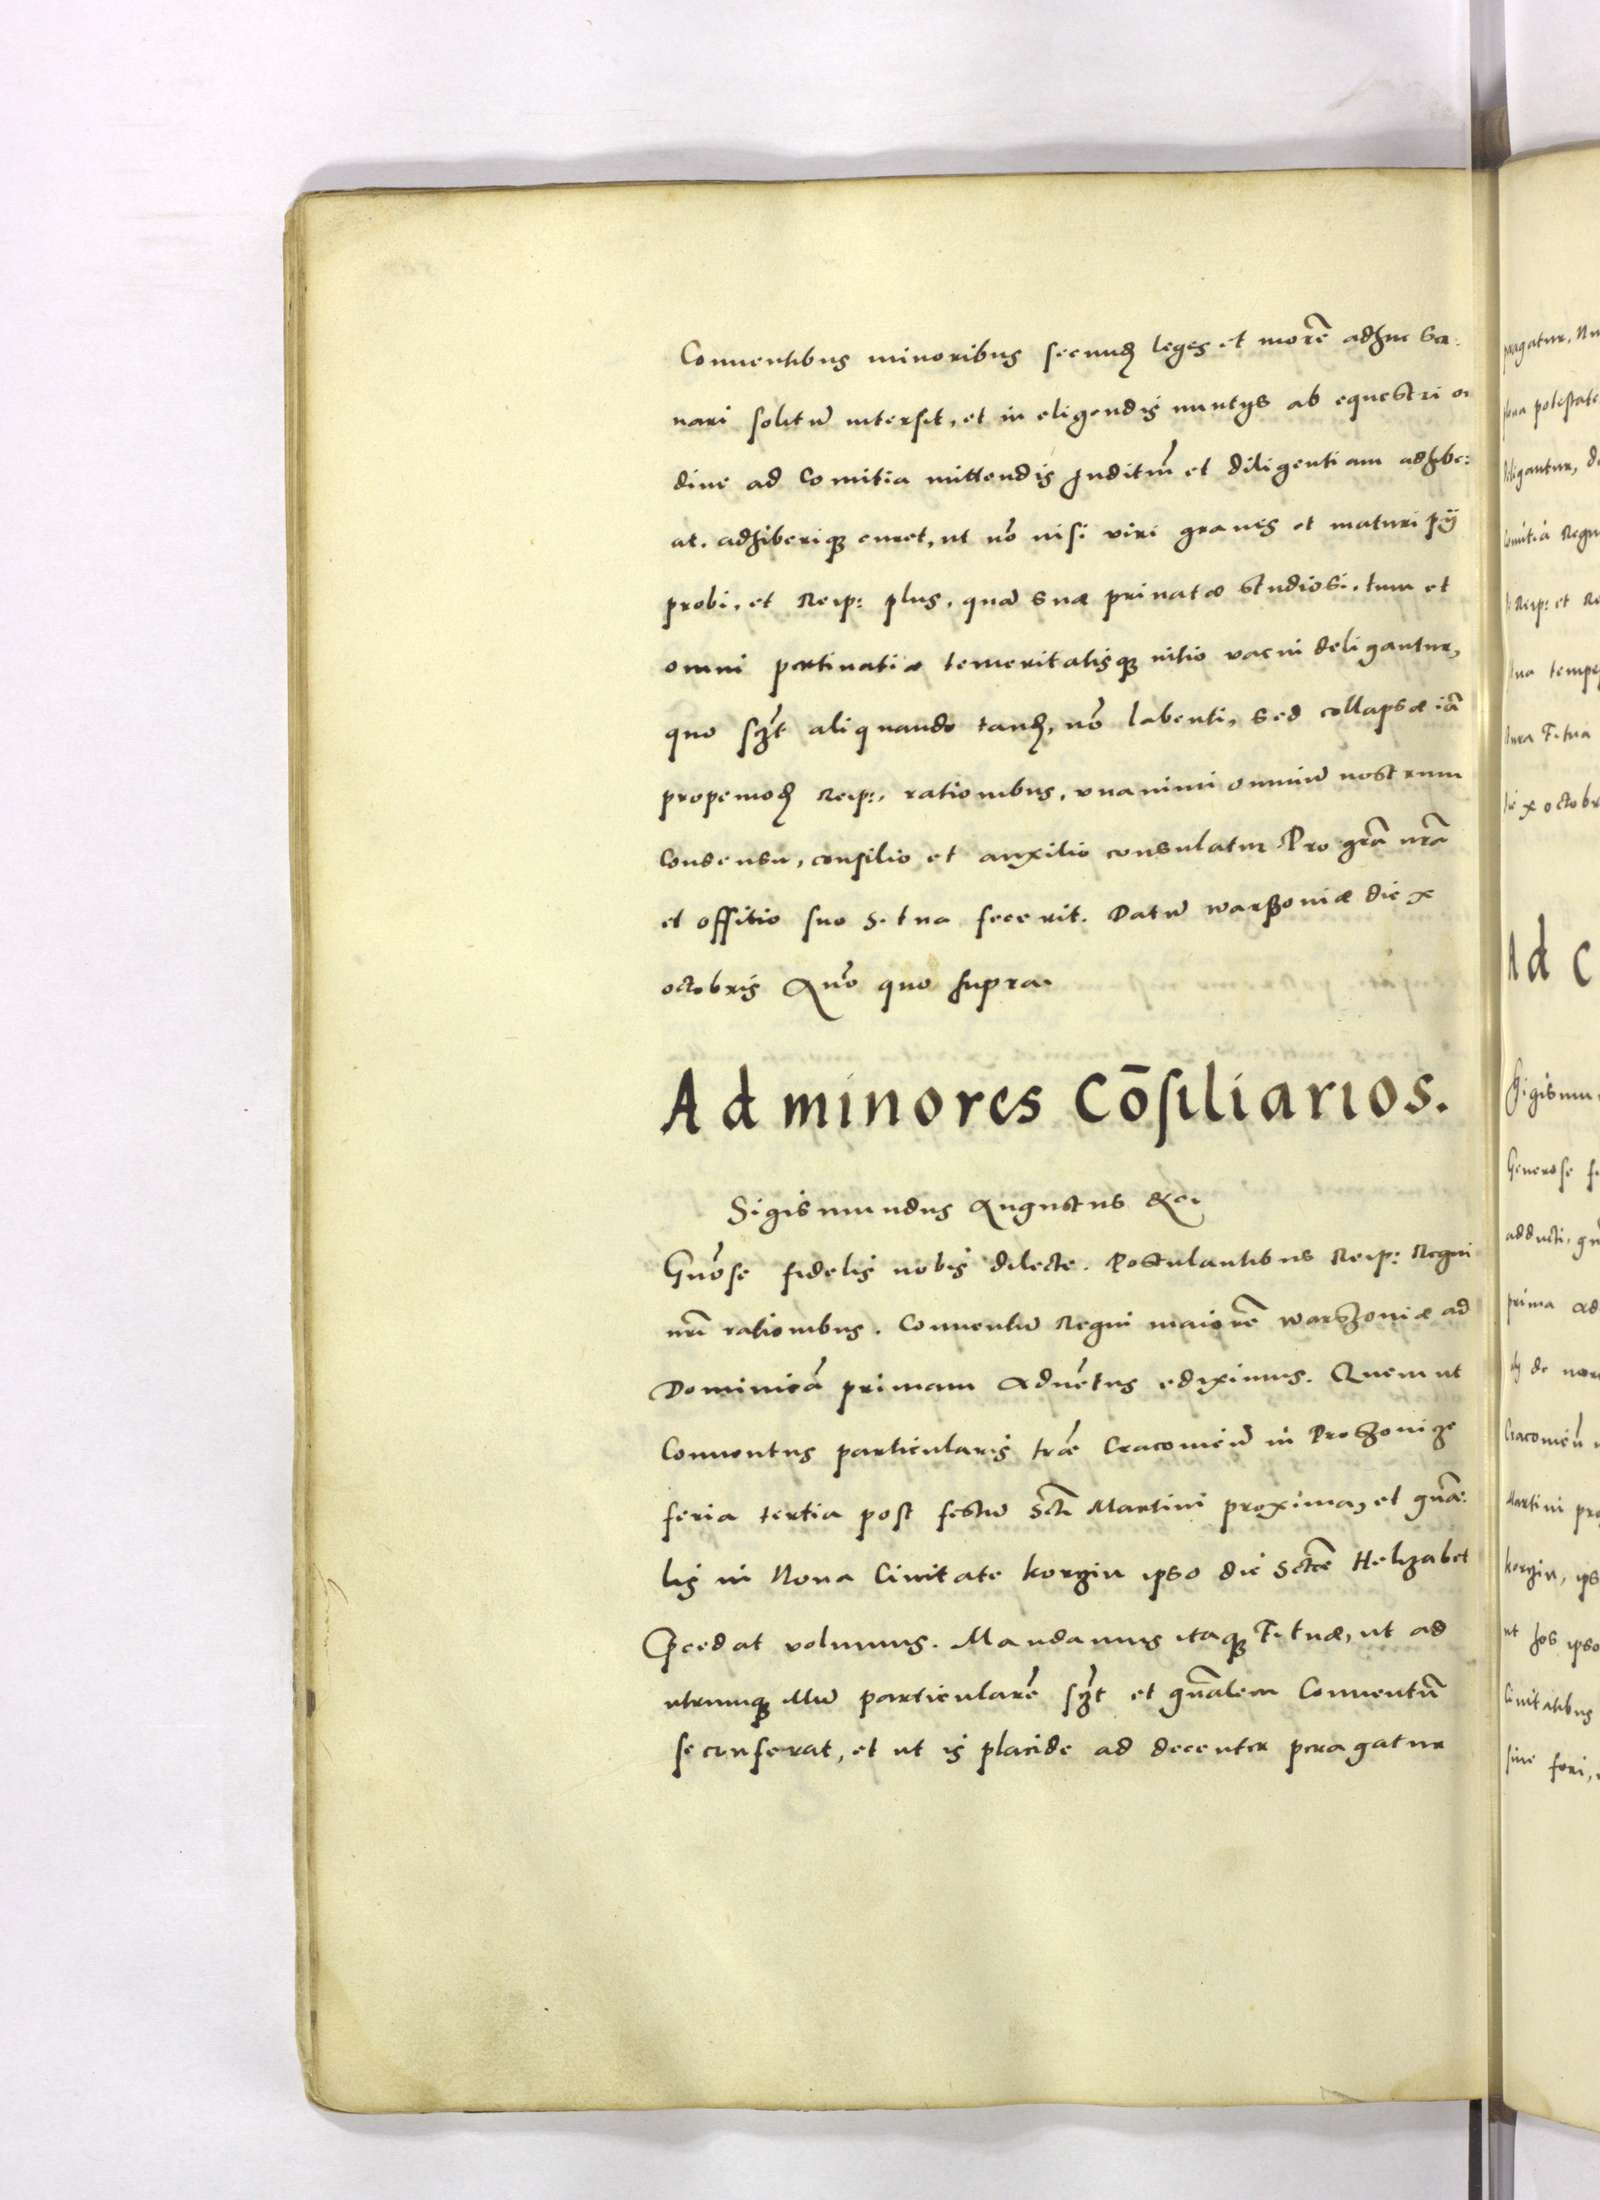 Conuentibus minoribus secundũ leges et morẽ adhuc ser:
uari solitũ intersit, et in eligendis nuntijs ab equestri or
dine ad Comitia mittendis Iuditiũ et diligentiam adhibe:
at. adhiberiq; curet, ut nõ nisi viri graues et maturi pij
probi, et Reip: plus, quã suæ priuatæ studiosi, tum et
omni pertinatiæ temeritatisq; uitio vacui deligantur,
quo scz̃t aliquando tandẽ, nõ labenti, sed collapsæ iã
propemodũ Reip:, rationibus, vnanimi omniũ nostrum
Consensu, consilio et auxilio consulatur Pro grã nrã
et offitio suo S. tua fecerit. Datũ warssouiæ die x
octobris Anõ quo supra.
Ad minores Cōsiliarios.
Sigismundus Augustus &c.
Gnõse fidelis nobis dilecte. Postulantibus Reip: Regni
nrĩ rationibus. Conuentũ Regni maiorẽ warszouiæ ad
Dominicã primam Aduẽtus ediximus. Quem ut
Conuentus particularis trãe Cracouieñ in Proszouicze
feria tertia post festũ Scti Martini proxima, et gnãe:
lis in Noua Ciuitate korczin ipso die Sctæ Helizabet
Præcedat volumus. Mandamus itaq; F. tuæ, ut ad
utrumq; illũ particularẽ scz̃t et gnãlem Conuentũ
se conferat, et ut is placide ad decenter peragatur
pragatur, Nu
plena potestate
deligantur, d
Comitia Regn
Reip: et Re
tua tempe
F. tua
die x octobr
Ad C
Sigismun
Generose fi
adducti, qu
prima Ad
de mor
Cracouieñ
Martini pro
korczin, ips
ut hos ipso
Ciuitatibus
siue fori,